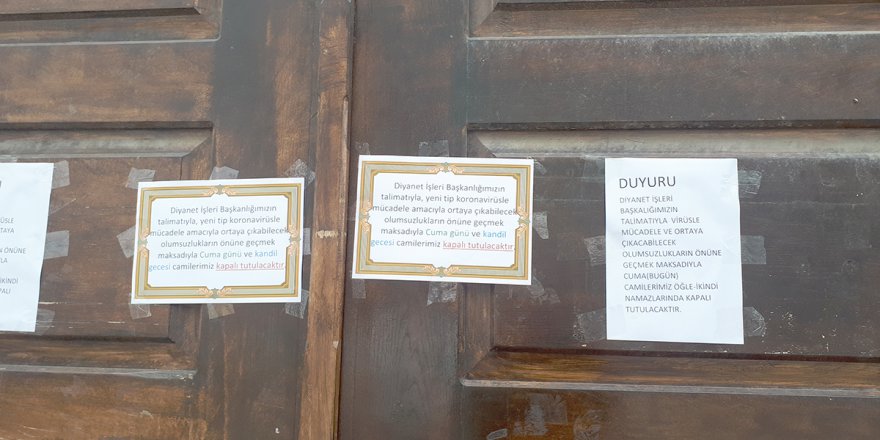 RÜSLE
ÖNÜNE
Diyanet İşleri Başkanlığımızın
talimatıyla, yeni tip koronavirüsle
mücadele amacıyla ortaya çıkabilecek
olumsuzlukların önüne geçmek
maksadıyla Cuma günü ve kandil
gecesi camilerimiz kapalı tutulacaktır.
Diyanet İşleri Başkanlığımızın
talimatıyla, yeni tip koronavirüsle
mücadele amacıyla ortaya çıkabilecek
olumsuzlukların önüne geçmek
maksadıyla Cuma günü ve kandil
gecesi camilerimiz kapalı tutulacaktır.
DUYURU
DİYANET İŞLERİ
BAŞKALIĞIMIZIN
TALİMATIYLA VİRÜSLE
MÜCADELE VE ORTAYA
ÇIKACABİLECEK
OLUMSUZLUKLARIN ÖNÜNE
GEÇMEK MAKSADIYLA
CUMA(BUGÜN)
CAMİLERİMİZ ÖĞLE-İKİNDİ
NAMAZLARINDA KAPALI
TUTULACAKTIR.